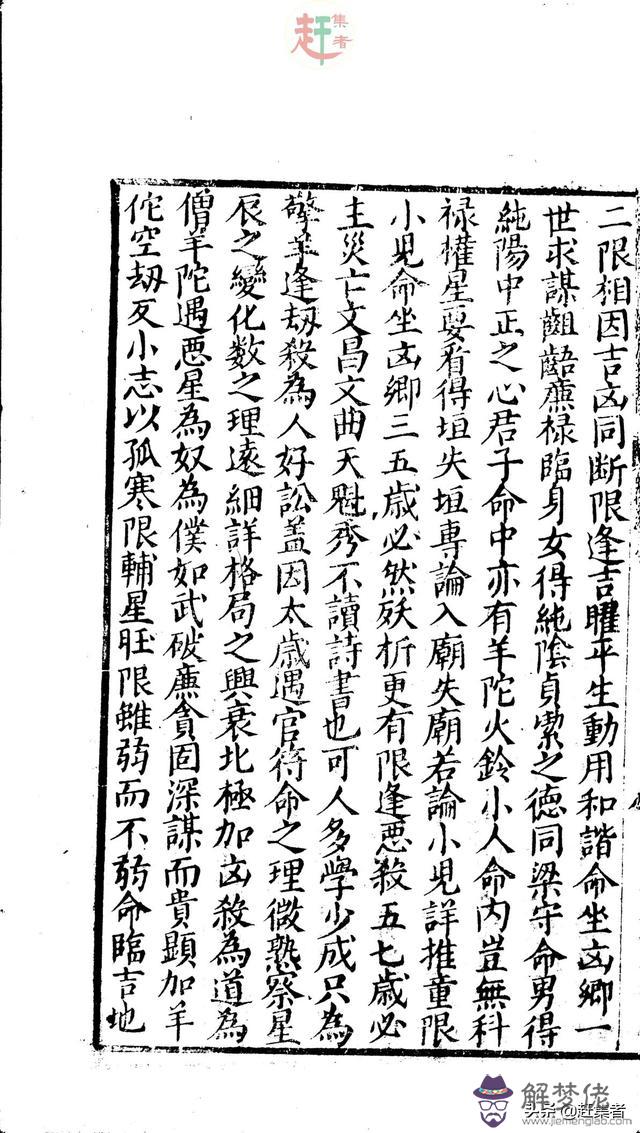 赶集者
二限相因吉凶同断限逢吉曜平生動用和諧命坐凶鄉一
世求謀齟齬廉禄臨身女得純陰貞潔之德同梁守命男得
純陽中正之心君子命中亦有羊陀火鈴小人命内豈無科
禄權星要看得垣失垣專論入廟失廟若論小児詳推童限
小児命坐凶鄉三五歳必然殀折更有限逢悪殺五七歳必
主災亡文昌文曲天魁秀不讀詩書也可人多學少成只為
擎羊逢刼殺為人好訟盖因太歳遇官符命之理微熟察星
辰之變化数之理遠細詳格局之興衰北極加凶殺為道為
僧羊陀遇悪星為奴為僕如武破廉貪固深謀而貴顕加羊
佗空刼反小志以孤寒限輔星旺限雖弱而不弱命臨吉地
解梦佬
www.jiemenglao.com
头条@赶集者